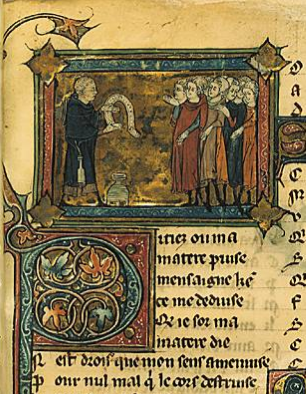 Pitiez ou ma
matere puise
mensaigne kē
ce me deduise
Q̄ ie sor ma
matere die
N est drois que mon sens amenuise
P our nul mal q̇ le cors destruise